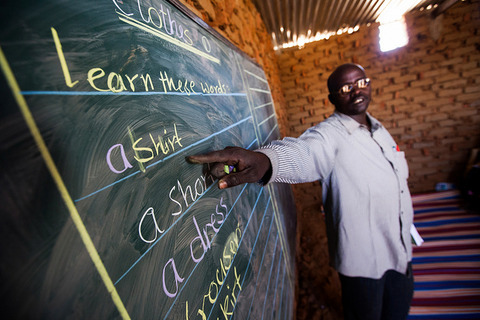 Clothes
Learn these words
a shirt
a
a dress
trousers
skirt